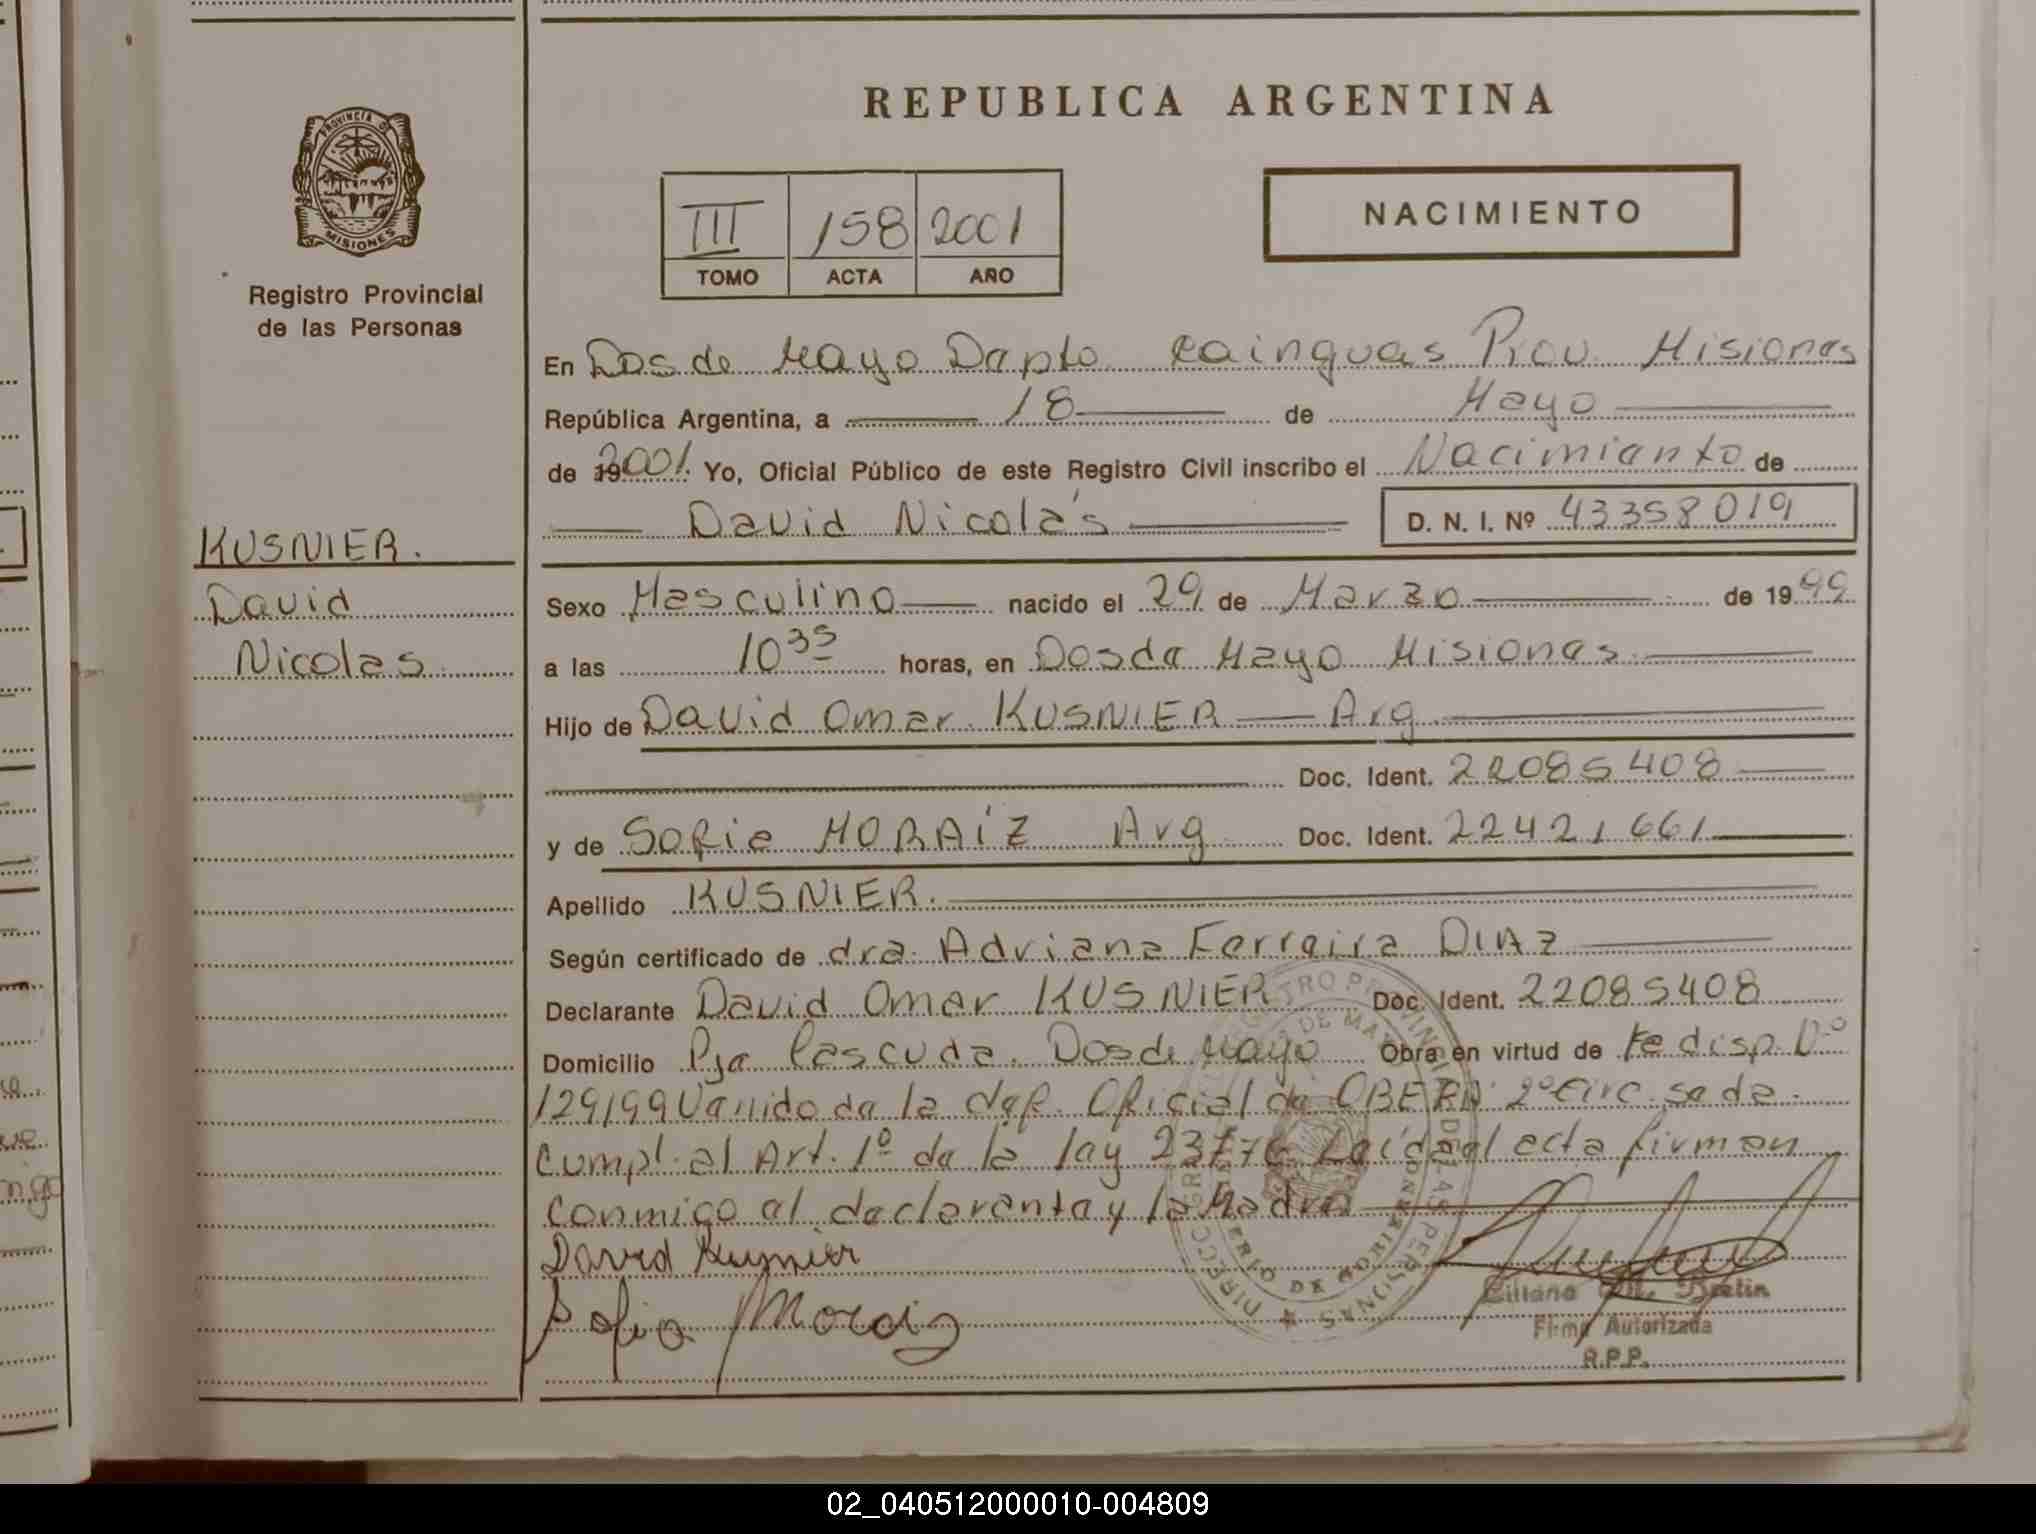 REPUBLICA ARGENTINA
PROVINCIA DE
MISIONES
Registro Provincial
de las Personas
III 158 2001
TOMO ACTA AÑO
NACIMIENTO
En Dos de Mayo Dapto. Cainguas Prov. Misiones
República Argentina, a 18 de Mayo
de 192001. Yo, Oficial Público de este Registro Civil inscribo el Nacimianto de
David Nicolás D. N. I. Nº 43358019
KUSNIER.
David
Nicolas
Sexo Masculino nacido el 29 de Marzo de 1999
a las 10 35 horas, en Dos da Mayo Misiones
Hijo de David Omar KUSNIER Arg
Doc. Ident. 22085408
y de Sofia MORAÍZ Arg Doc. Ident. 22421661
Apellido KUSNIER.
Según certificado de dra. Adriana Ferraira DIAZ
Declarante David Omar KUSNIER Doc. Ident. 22085408
Domicilio Pja Pascuda. Dos de Mayo Obra en virtud de te disp. Dº
129/99 Vanido da la daf. Oficial da OBERA 2º Circ. se da
cumpl. al Art. 1º da la lay 23776 Laída al acta firman
conmigo al daclaranta y la Madra
David Kusnier
Sofia Moraiz
DIRECC REGISTRO PROVINCIAL DE LAS PERSONAS
DOS DE MAYO
MINISTERIO DE GOBIERNO
Liliana M. Bretin
Firma Autorizada
R.P.P.
02_040512000010-004809